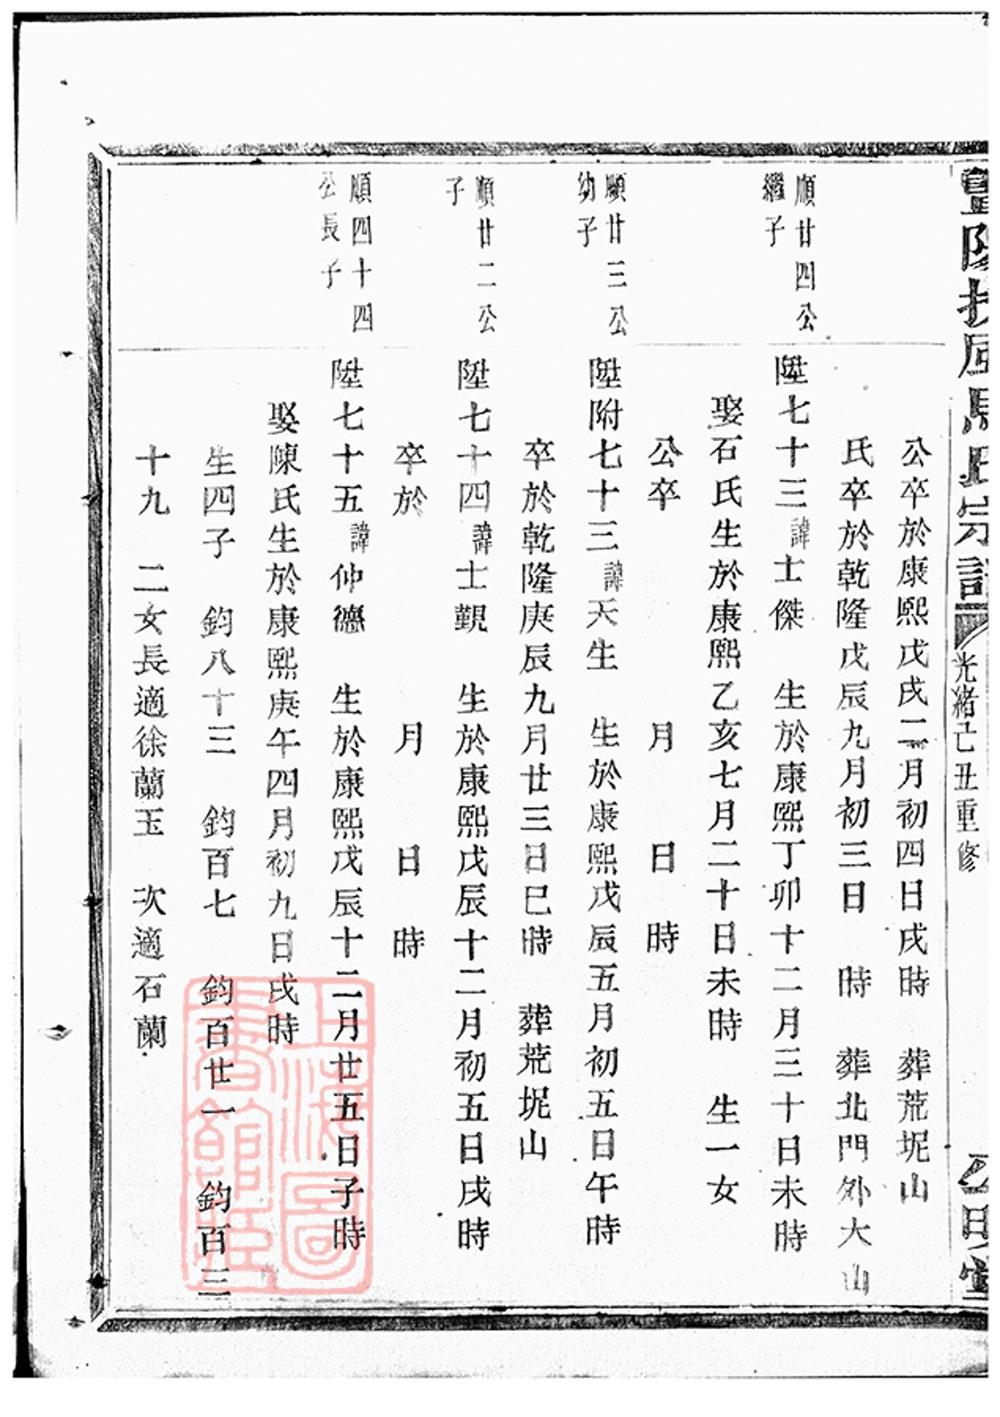 暨陽扶風馬氏宗譜 光緒己丑重修
公卒於康熙戊戌二月初四日戌時 葬荒坭山
氏卒於乾隆戊辰九月初三日 時 葬北門外大山
順廿四公
繼子
陞七十三諱士傑 生於康熙丁卯十二月三十日未時
娶石氏生於康熙乙亥七月二十日未時 生一女
公卒 月 日 時
順廿三公
幼子
陞附七十三諱天生 生於康熙戊辰五月初五日午時
卒於乾隆庚辰九月廿三日巳時 葬荒坭山
順廿二公
子
陞七十四諱士觀 生於康熙戊辰十二月初五日戌時
卒於 月 日 時
順四十四
公長子
陞七十五諱仲德 生於康熙戊辰十二月廿五日子時
娶陳氏生於康熙庚午四月初九日戌時
生四子 鈞八十三 鈞百七 鈞百廿一 鈞百三
十九 二女長適徐蘭玉 次適石蘭
上海圖書館藏